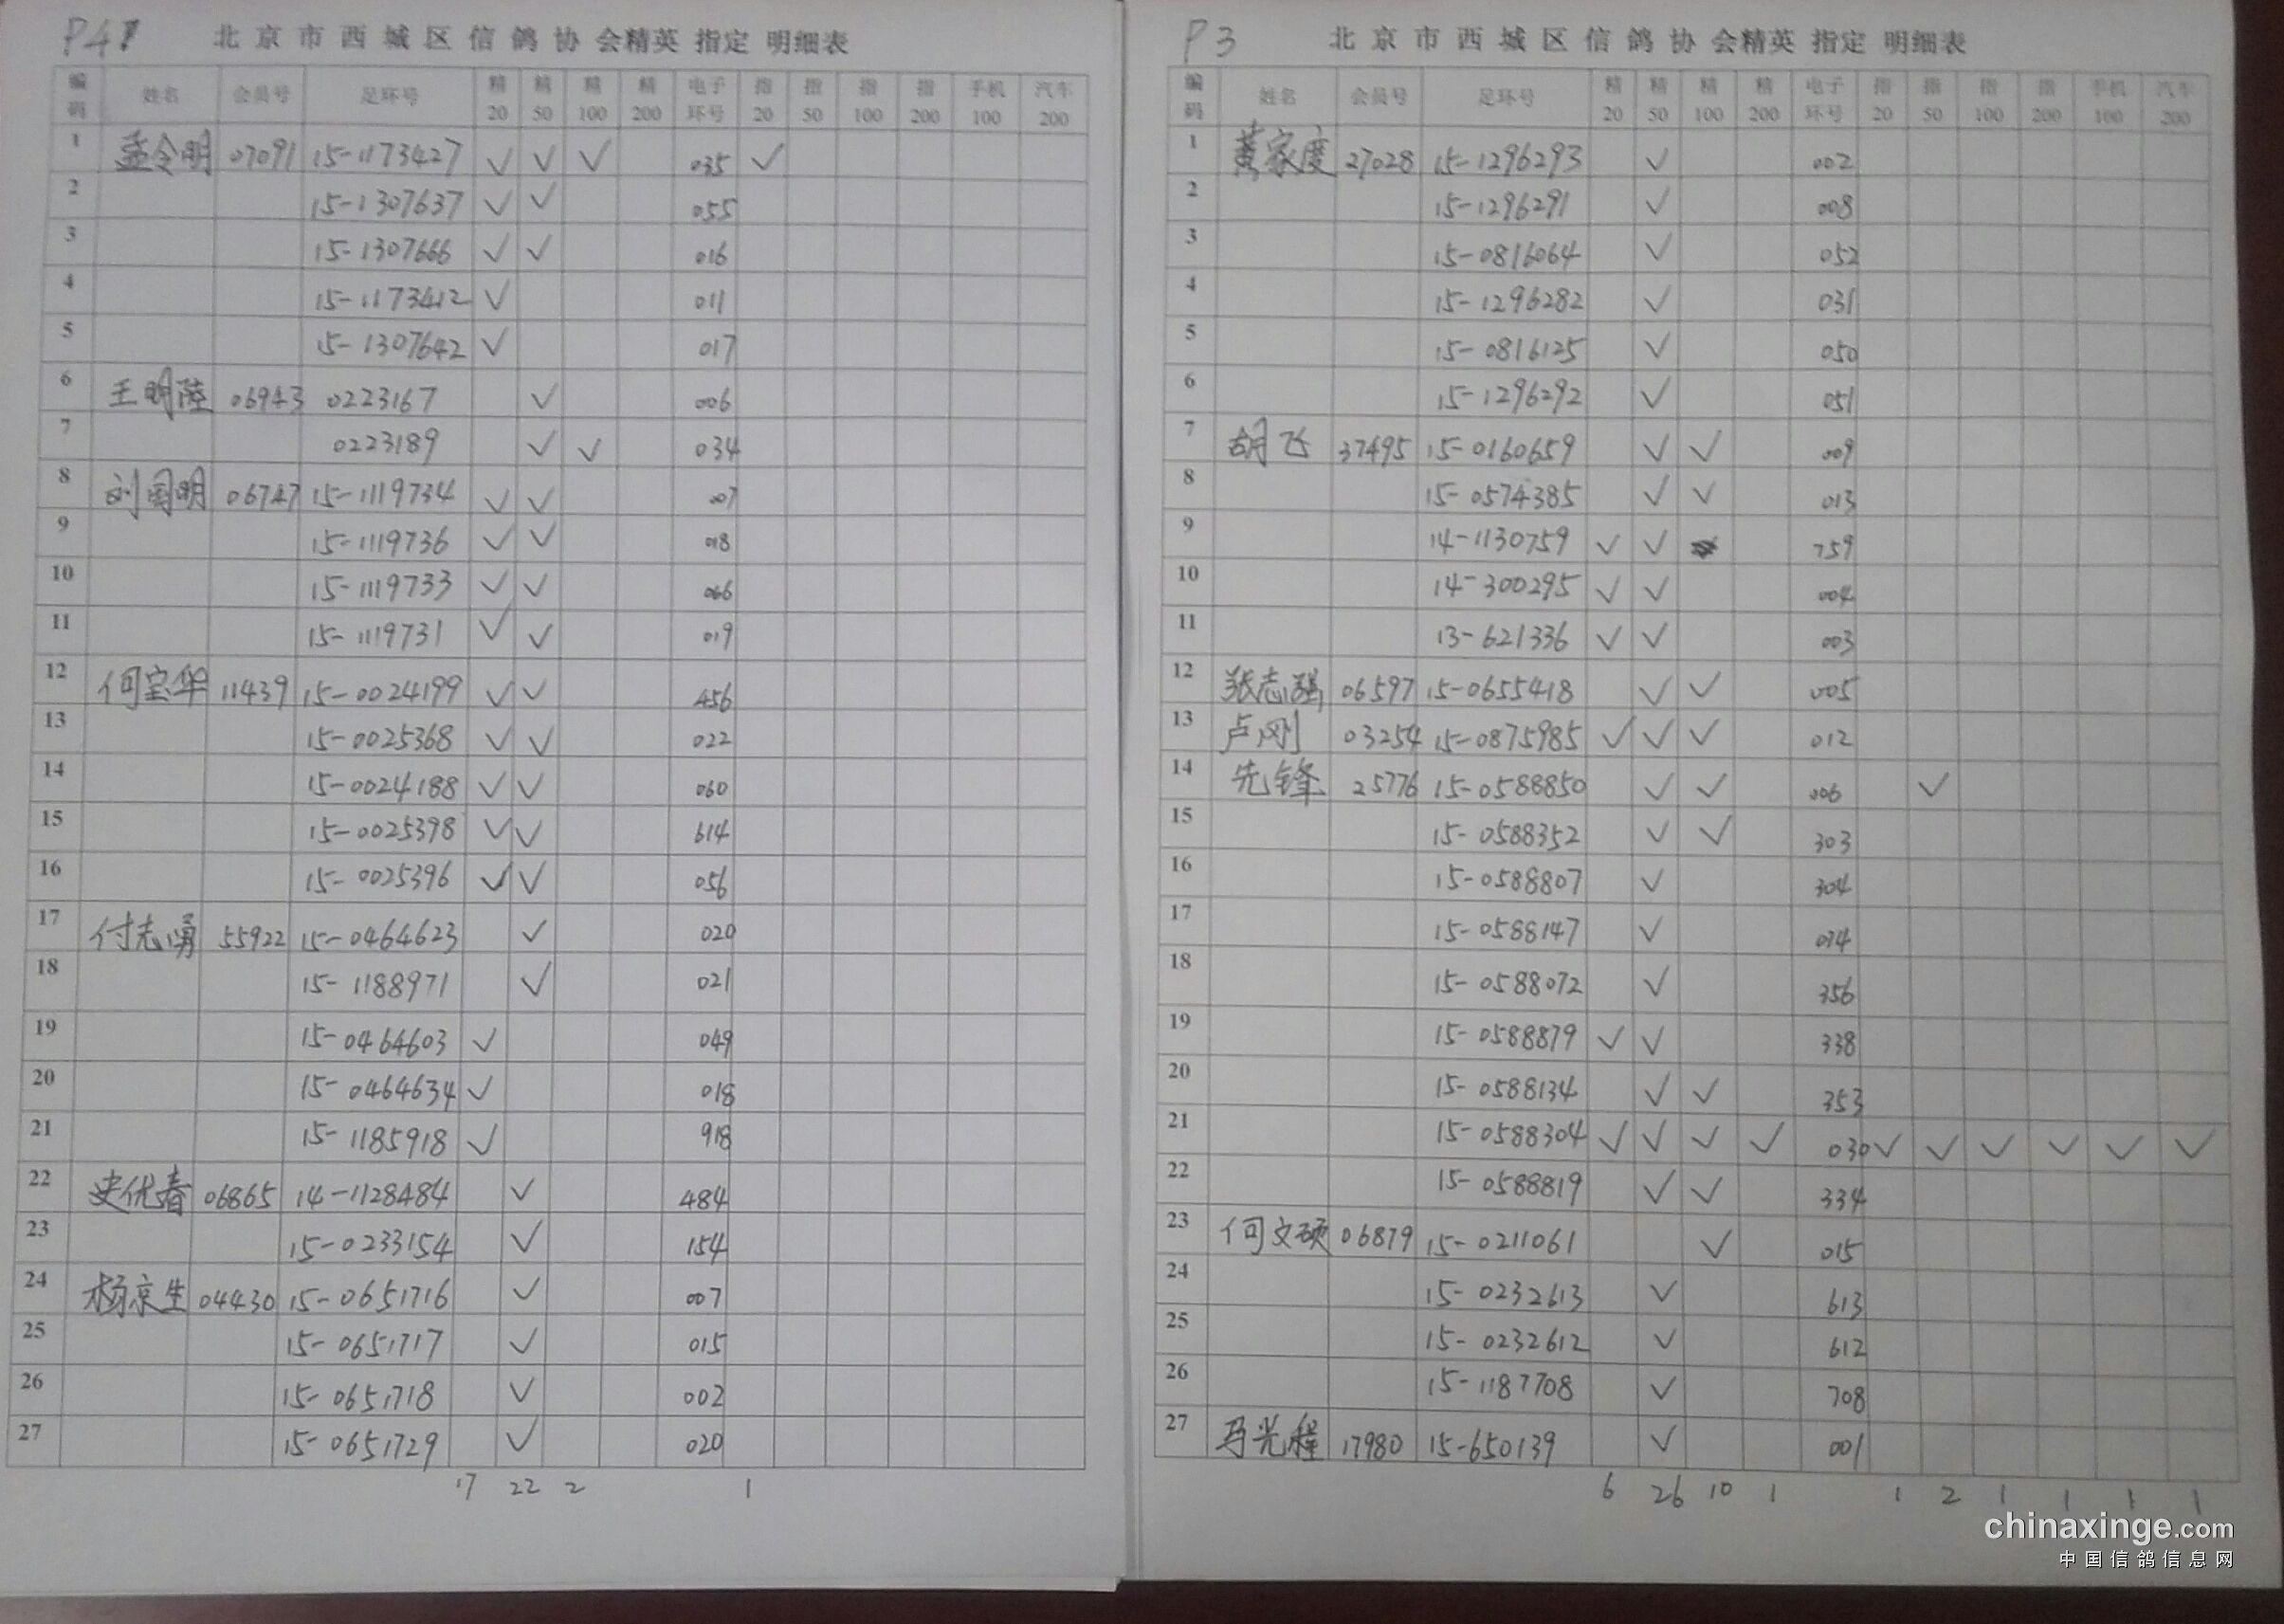 P4 北京市西城区信鸽协会精英 指定 明细表
编码 姓名 会员号 足环号 精20 精50 精100 精200 电子环号 指20 指50 指100 指200 手机100 汽车200
1 孟令明 07091 15-1173427 ✓ ✓ ✓ 035 ✓
2 15-1307637 ✓ ✓ 055
3 15-1307666 ✓ ✓ 016
4 15-1173412 ✓ 011
5 15-1307642 ✓ 017
6 王明陸 06943 0223167 ✓ 006
7 0223189 ✓ ✓ 034
8 刘国明 06747 15-1119734 ✓ ✓ 007
9 15-1119736 ✓ ✓ 018
10 15-1119733 ✓ ✓ 066
11 15-1119731 ✓ ✓ 019
12 何宝华 11439 15-0024199 ✓ ✓ 456
13 15-0025368 ✓ ✓ 022
14 15-0024188 ✓ ✓ 060
15 15-0025398 ✓ ✓ 614
16 15-0025396 ✓ ✓ 056
17 付志勇 55922 15-0464623 ✓ 020
18 15-1188971 ✓ 021
19 15-0464603 ✓ 049
20 15-0464634 ✓ 018
21 15-1185918 ✓ 918
22 史优春 06865 14-1128484 ✓ 484
23 15-0233154 ✓ 154
24 杨京生 04430 15-0651716 ✓ 007
25 15-0651717 ✓ 015
26 15-0651718 ✓ 002
27 15-0651729 ✓ 020
17 22 2 1
P3 北京市西城区信鸽协会精英 指定 明细表
编码 姓名 会员号 足环号 精20 精50 精100 精200 电子环号 指20 指50 指100 指200 手机100 汽车200
1 黄家度 27028 15-1296293 ✓ 002
2 15-1296291 ✓ 008
3 15-0816064 ✓ 052
4 15-1296282 ✓ 031
5 15-0816125 ✓ 050
6 15-1296292 ✓ 051
7 胡飞 37495 15-0160659 ✓ ✓ 009
8 15-0574385 ✓ ✓ 013
9 14-1130759 ✓ ✓ 759
10 14-300295 ✓ ✓ 004
11 13-621336 ✓ ✓ 003
12 张志强 06597 15-0655418 ✓ ✓ 005
13 卢刚 03254 15-0875985 ✓ ✓ ✓ 012
14 先锋 25776 15-0588850 ✓ ✓ 006 ✓
15 15-0588352 ✓ ✓ 303
16 15-0588807 ✓ 304
17 15-0588147 ✓ 014
18 15-0588072 ✓ 356
19 15-0588879 ✓ ✓ 338
20 15-0588134 ✓ ✓ 353
21 15-0588304 ✓ ✓ ✓ ✓ 030 ✓ ✓ ✓ ✓ ✓ ✓
22 15-0588819 ✓ ✓ 334
23 何文硕 06879 15-0211061 ✓ 015
24 15-0232613 ✓ 613
25 15-0232612 ✓ 612
26 15-1187708 ✓ 708
27 马光程 17980 15-650139 ✓ 001
6 26 10 1 1 2 1 1 1 1
chinaxinge.com
中国信鸽信息网